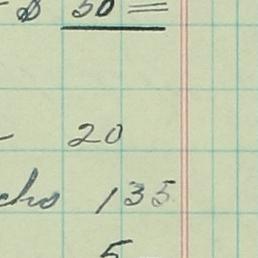 $ 50 =
20
135
5